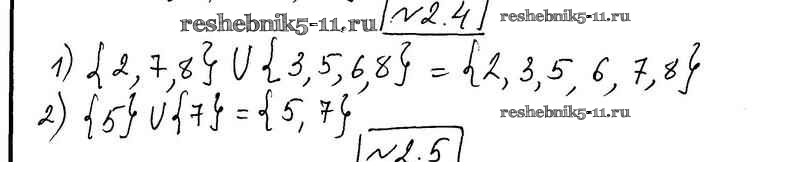 reshebnik5-11.ru №2.4 reshebnik5-11.ru
1) {2,7,8} U {3,5,6,8} = {2, 3, 5, 6, 7, 8}
2) {5} U {7} = {5, 7} reshebnik5-11.ru
№2.5